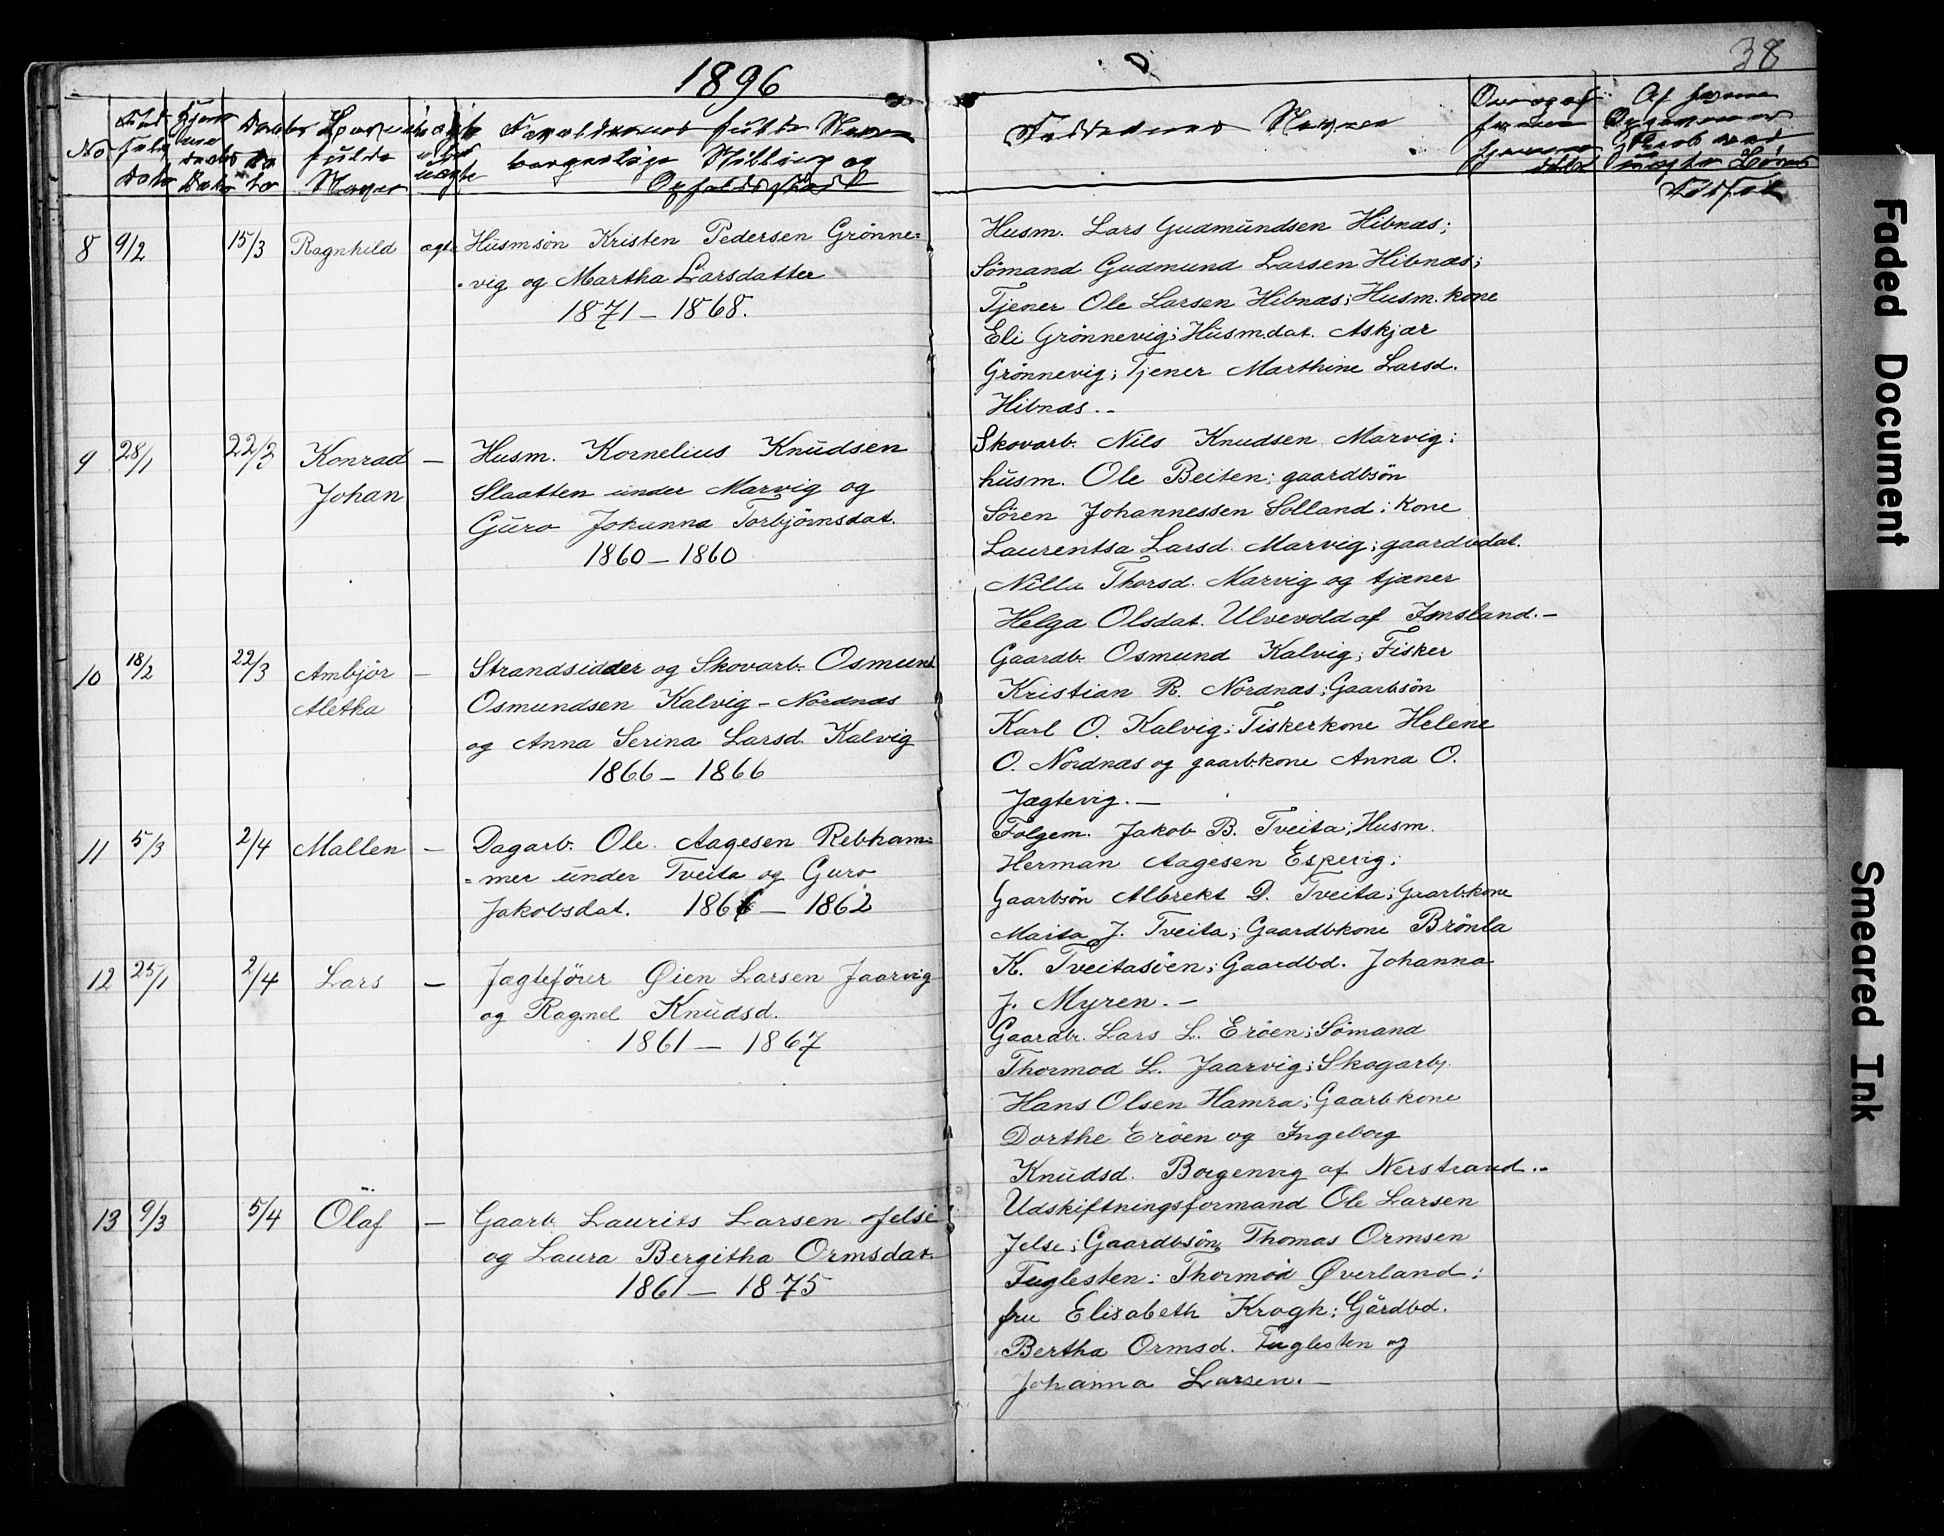 1896
38
No
Fødselsdato
Daabsdato
Barnets fulde Navn
Forældrenes fulde Navn borgerlige Stilling og Opholdssted
Faddernes Navne
8 9/2 15/3 Ragnhild ægte Husmsön Kristen Pedersen Grønne=
-vig og Martha Larsdatter
1871 – 1868.
Husm. Lars Gudmundsen Hibnæs;
Sömand Gudmund Larsen Hibnæs;
Tjener Ole Larsen Hibnæs; Husm. kone
Eli Grönnevig; Husmdat. Askjær
Grönnevig; Tjener Marthine Larsd.
Hibnæs. –
9 28/1 22/3 Konrad – Husm. Kornelius Knudsen
Johan Slaatten under Marvig og
Guro Johanna Torbjörnsdat.
1860 – 1860
Skovarb. Nils Knudsen Marvig;
husm. Ole Beiten; gaardbsön
Sören Johannessen Solland; Kone
Laurentsa Larsd. Marvig; gaardbdat.
Nilla Thorsd. Marvig og tjæner
Helga Olsdat. Ulvevold af Imsland. –
10 18/2 22/3 Ambjör – Strandsidder og Skovarb. Osmund
Aletha Osmundsen Kalvig – Nordnæs
og Anna Serina Larsd. Kalvig
1866 – 1866
Gaardb. Osmund Kalvig; Fisker
Kristian R. Nordnæs; Gaarbsön
Karl O. Kalvig; Fiskerkone Helene
O. Nordnæs og gaarb.kone Anna O.
Jægtevig. –
11 5/3 2/4 Mallen – Dagarb. Ole Aagesen Rebham=
=mer under Tveita og Guro
Jakobsdat. 1861 – 1862
Folgem. Jakob B. Tveita; Husm.
Herman Aagesen Espevig;
Gaarbsön Albrekt D. Tveita; Gaarbkone
Maita J. Tveita; Gaardbkone Brönla
K. Tveitasöen; Gaardbd. Johanna
J. Myren. –
12 25/1 2/4 Lars – Jægtefører Øien Larsen Jaarvig
og Ragnel Knudsd.
1861 – 1867
Gaardbr. Lars L. Eröen; Sömand
Thormod L. Jaarvig; Skogarb.
Hans Olsen Hamra; Gaarbkone
Dorthe Eröen og Ingeborg
Knudsd. Borgenvig af Nerstrand. –
13 9/3 5/4 Olaf – Gaarb. Laurits Larsen Jelse
og Laura Bergitha Ormsdat.
1861 – 1875
Udskiftningsformand Ole Larsen
Jelse; Gaardbsön Thomas Ormsen
Fuglesten; Thormod Øverland;
fru Elisabeth Krogh; Gårdbd.
Bertha Ormsd. Fuglesten og
Johanna Larsen. –
Faded Document
Smeared Ink